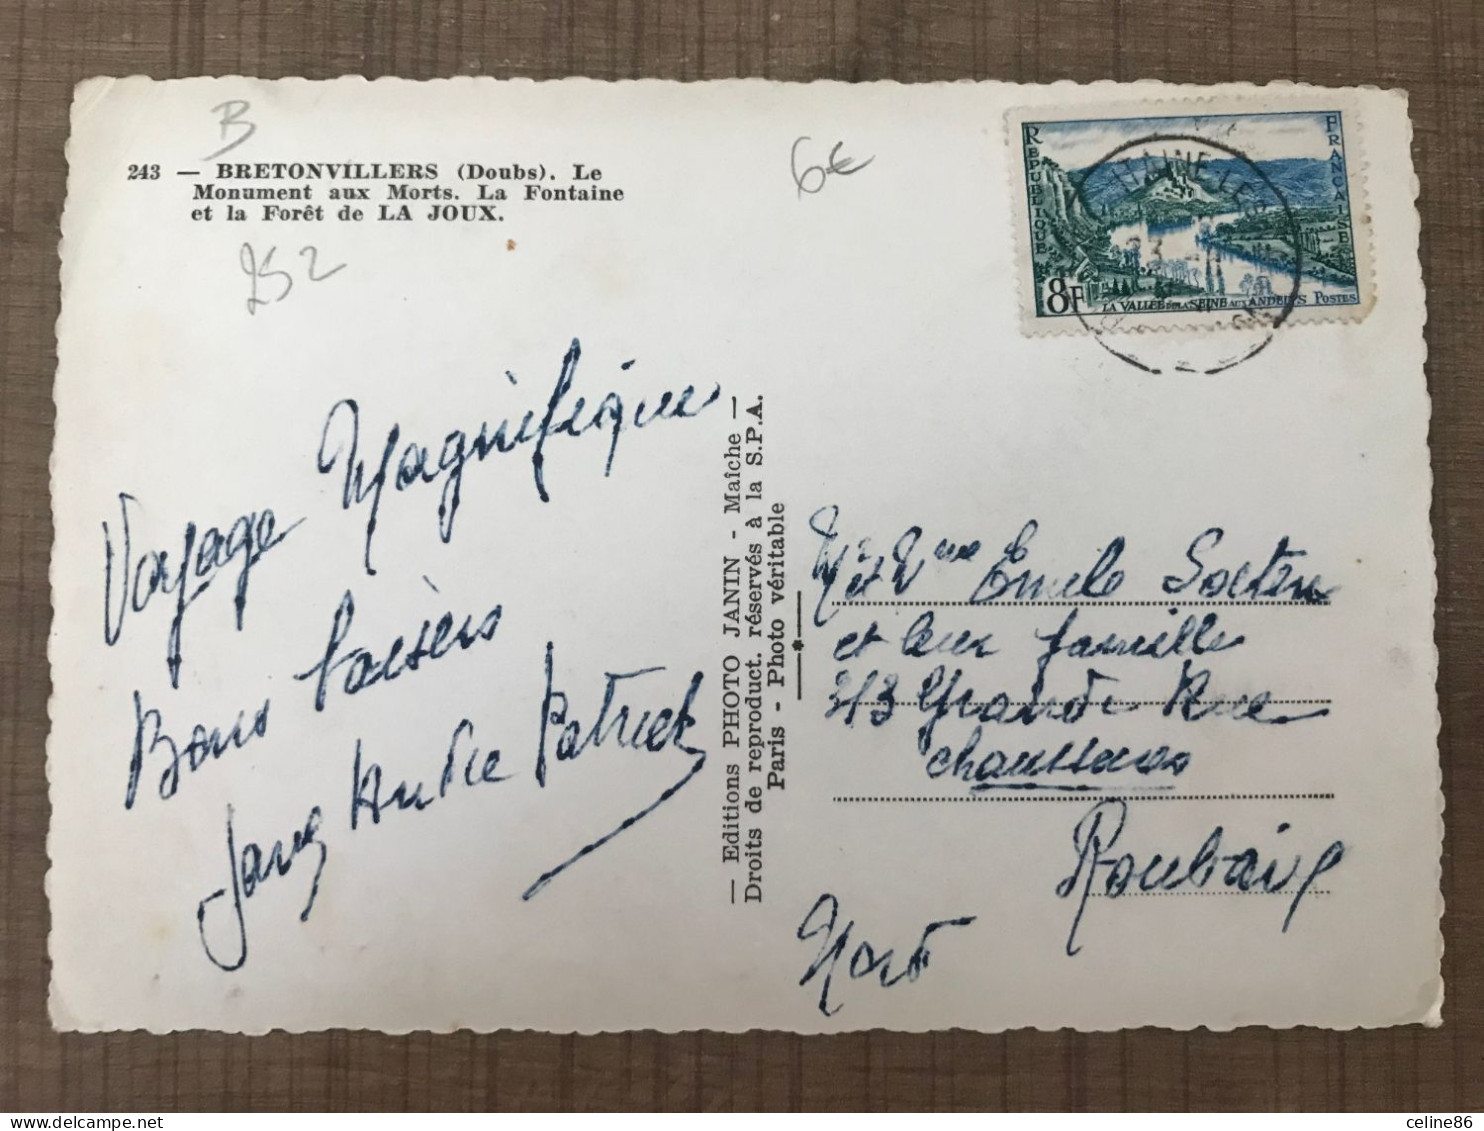 B
243 — BRETONVILLERS (Doubs). Le
Monument aux Morts. La Fontaine
et la Forêt de LA JOUX.
252
6€
REPUBLIQUE
FRANCAISE
8F
LA VALLEE DE LA SEINE AUX ANDELYS POSTES
Voyage Magnifique
Bons baisers
André Patrick
— Editions PHOTO JANIN - Maîche —
Droits de reproduct. réservés à la S.P.A.
Paris - Photo véritable
Emile
et leur famille
313 Grande Rue
chaussures
Roubaix
Nord
celine86